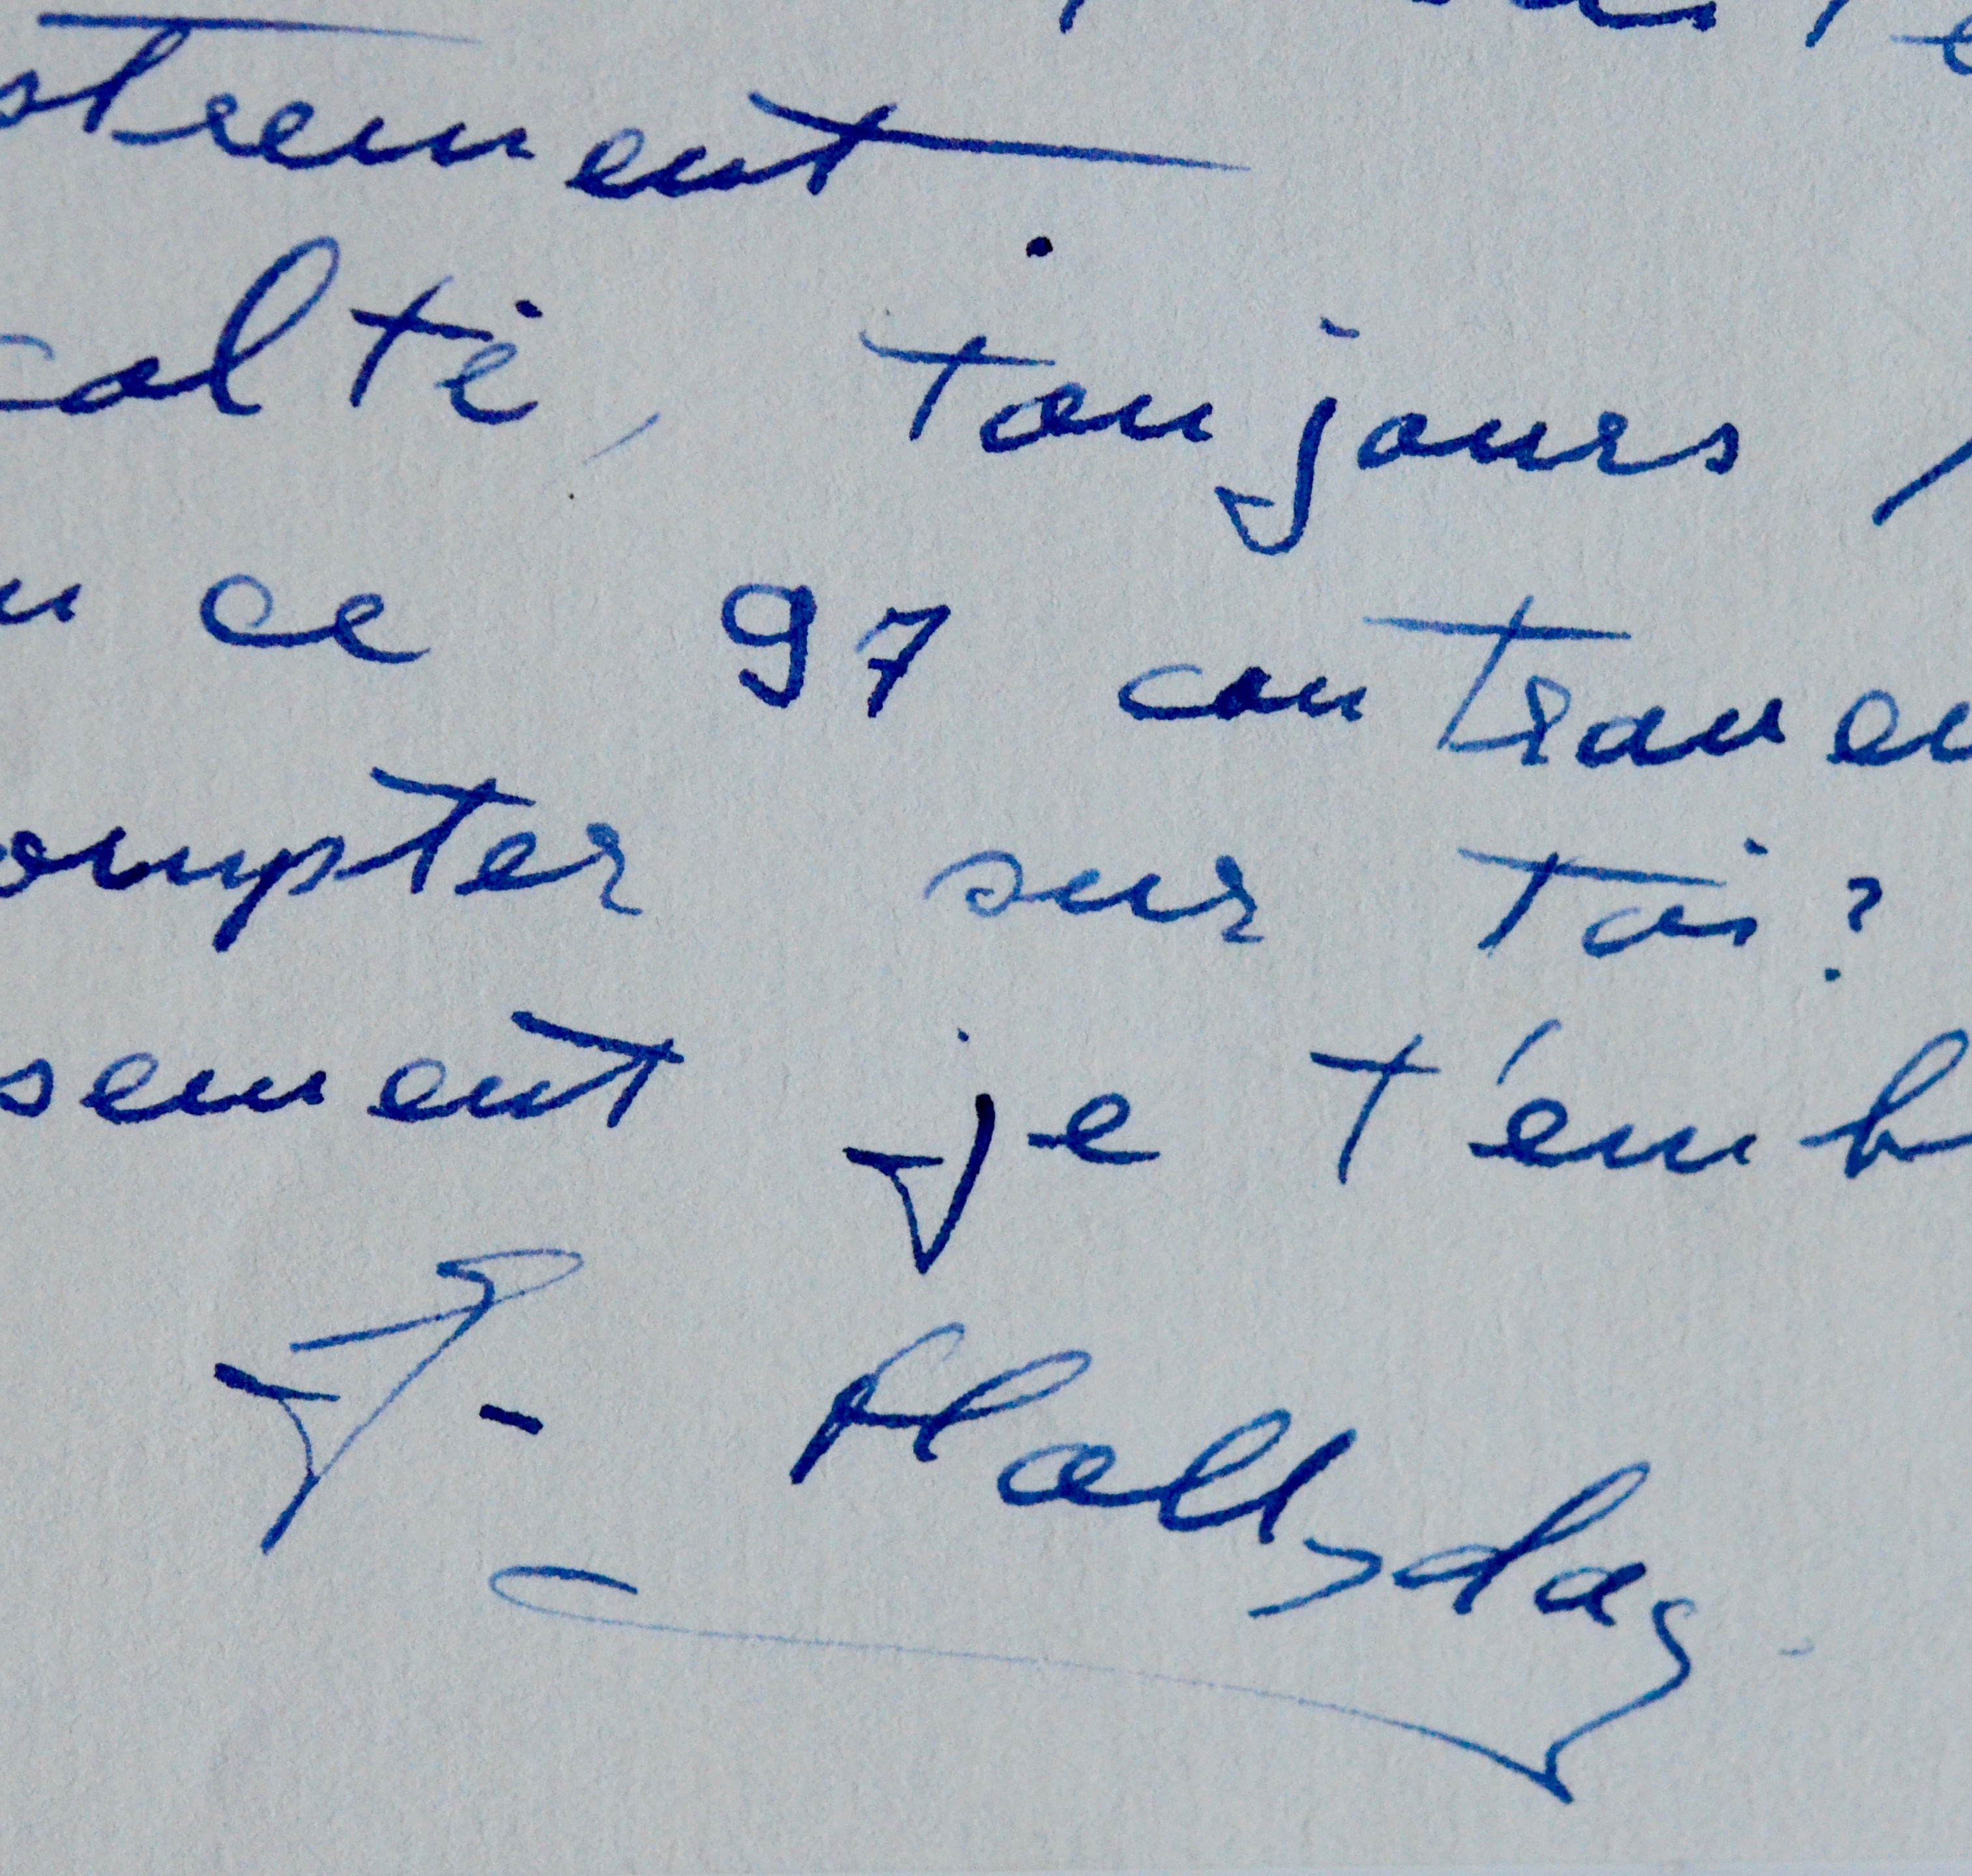 strement
colté, toujours
ce 97 contraven
ompter sur toi?
sement je t'emb
J- Hallyday